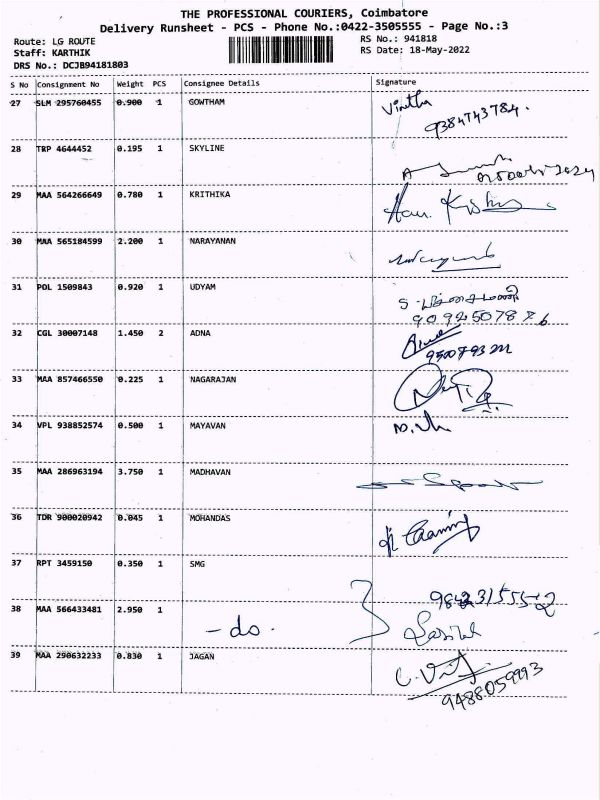 THE PROFESSIONAL COURIERS, Coimbatore
Delivery Runsheet - PCS - Phone No.:0422-3505555 - Page No.:3
Route: LG ROUTE
Staff: KARTHIK
DRS No.: DCJB94181803
RS No.: 941818
RS Date: 18-May-2022
S No Consignment No Weight PCS Consignee Details Signature
27 SLM 295760455 0.900 1 GOWTHAM Vinitha
9384743784.
28 TRP 4644452 0.195 1 SKYLINE
29 MAA 564266649 0.780 1 KRITHIKA
30 MAA 565184599 2.200 1 NARAYANAN
31 POL 1509843 0.920 1 UDYAM
32 CGL 30007148 1.450 2 ADNA
33 MAA 857466550 0.225 1 NAGARAJAN
34 VPL 938852574 0.500 1 MAYAVAN
35 MAA 286963194 3.750 1 MADHAVAN
36 TDR 900020942 0.045 1 MOHANDAS
37 RPT 3459150 0.350 1 SMG
38 MAA 566433481 2.950 1 - do -
39 MAA 290632233 0.830 1 JAGAN
9488059993